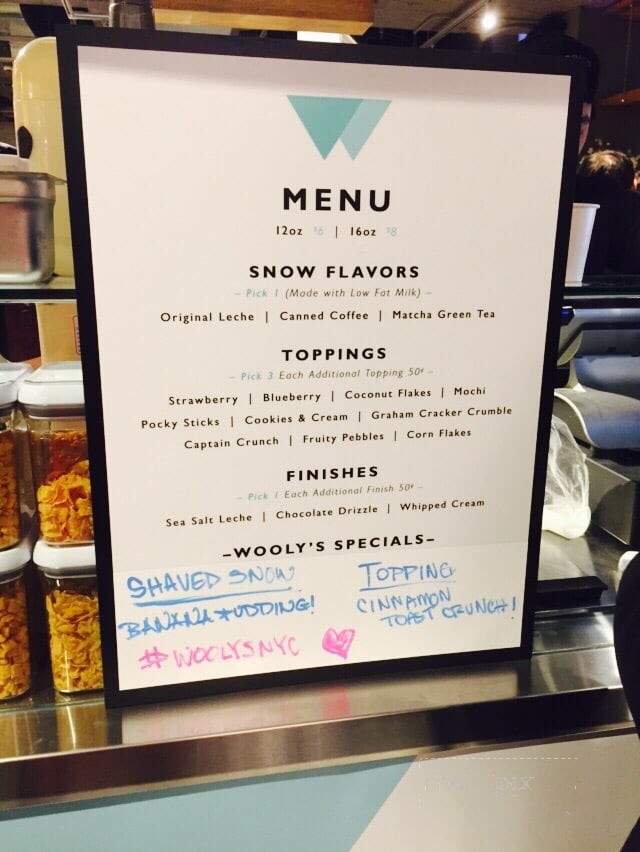 MENU
12oz $6 | 16oz $8
SNOW FLAVORS
– Pick 1 (Made with Low Fat Milk) –
Original Leche | Canned Coffee | Matcha Green Tea
TOPPINGS
– Pick 3 Each Additional Topping 50¢ –
Strawberry | Blueberry | Coconut Flakes | Mochi
Pocky Sticks | Cookies & Cream | Graham Cracker Crumble
Captain Crunch | Fruity Pebbles | Corn Flakes
FINISHES
– Pick 1 Each Additional Finish 50¢ –
Sea Salt Leche | Chocolate Drizzle | Whipped Cream
–WOOLY'S SPECIALS–
SHAVED SNOW
BANANA PUDDING!
TOPPING
CINNAMON
TOAST CRUNCH!
#WOOLYSNYC